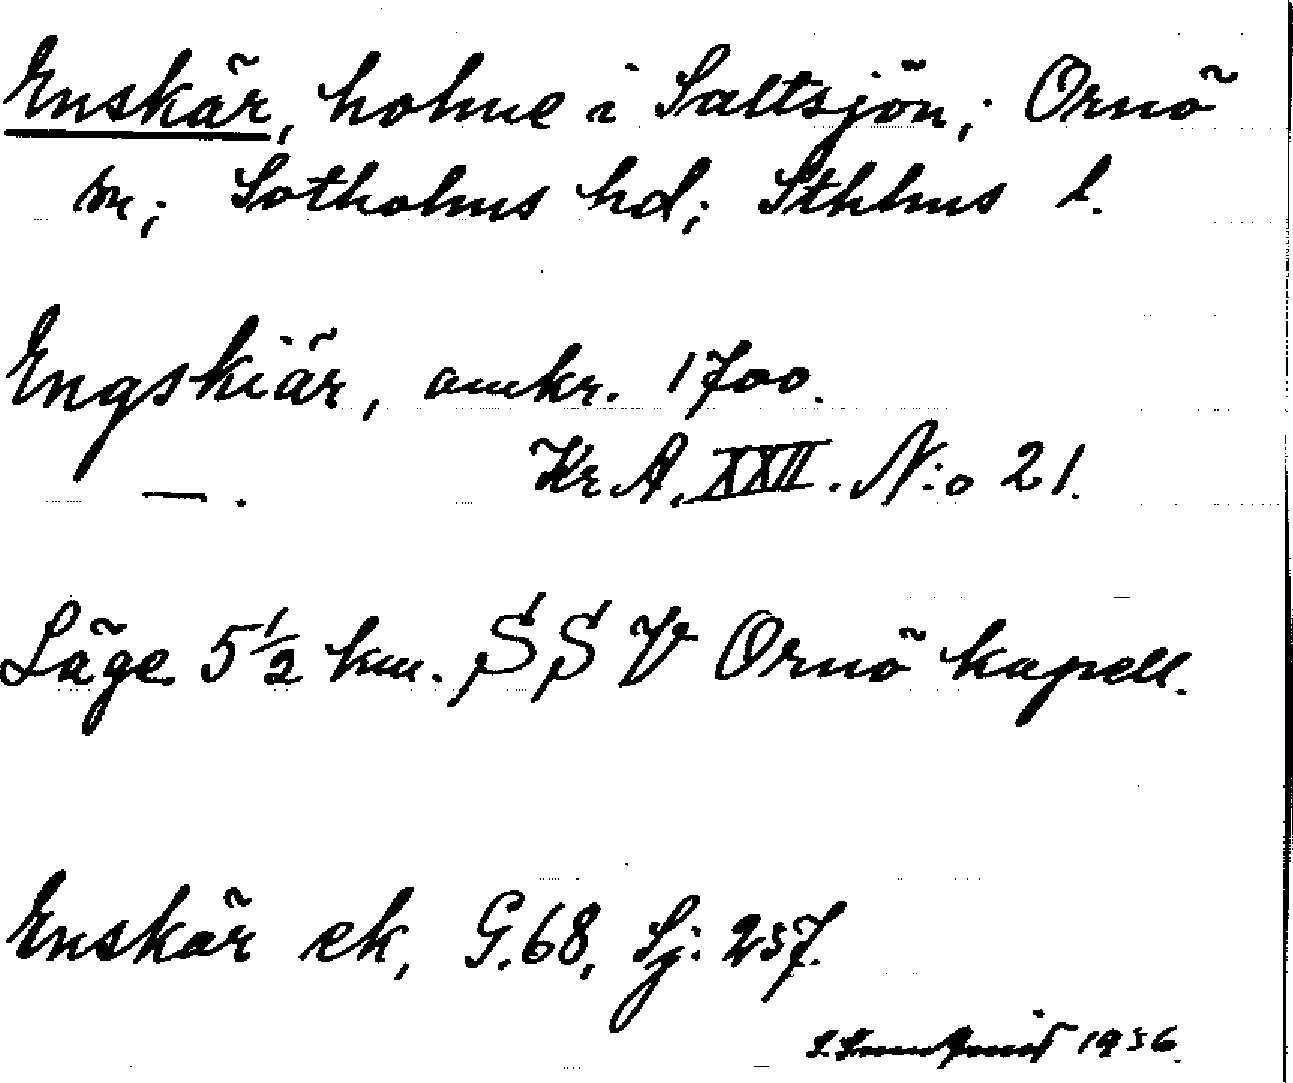 Enskär, holme i Saltsjön; Ornö
sn; Sotholms hd; Sthlms l.
Engskiär, omkr. 1700.
— . Kr. A. XXII. N:o 21.
Läge 5½ km. SSV Ornö kapell.
Enskär ek, G.68, Sj: 257.
1936